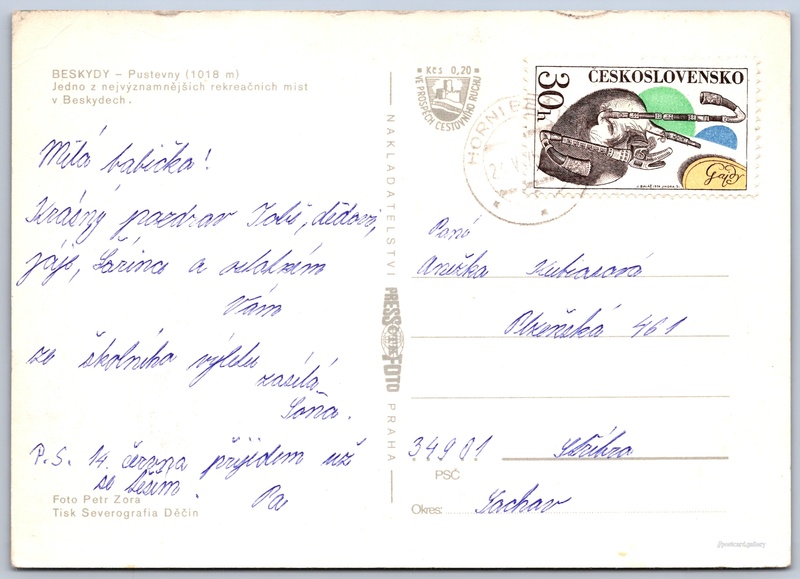 BESKYDY – Pustevny (1018 m)
Jedno z nejvýznamnějších rekreačních míst
v Beskydech.
Milá babičko!
Krásný pozdrav Tobě, dědovi,
a ostatním
Vám
ze školního výletu
zasílá
Soňa.
P.S. 14. června přijedem už
se těším. Pa
Foto Petr Zora
Tisk Severografia Děčín
NAKLADATELSTVÍ
PRESSFOTO
PRAHA
Kčs 0,20
VE PROSPĚCH CESTOVNÍHO RUCHU
HORNÍ BE
ČESKOSLOVENSKO
30h
Gajdy
Paní
Anežka Kubiasová
Plzeňská 461
34901 Stříbro
PSČ
Okres: Tachov